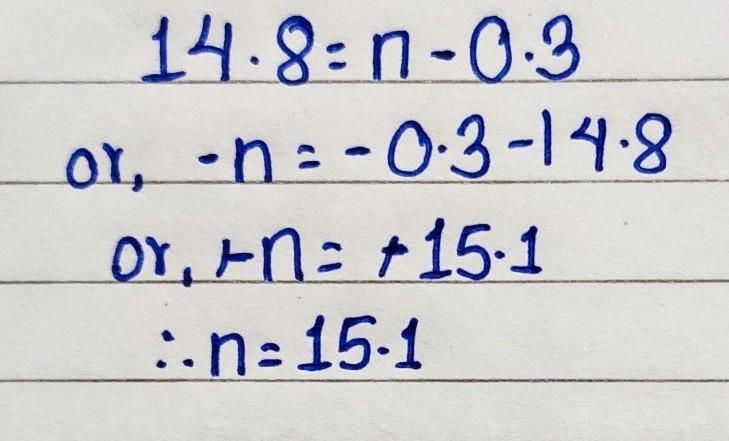 14.8 = n - 0.3
or, -n = -0.3 - 14.8
or, -n = -15.1
∴ n = 15.1